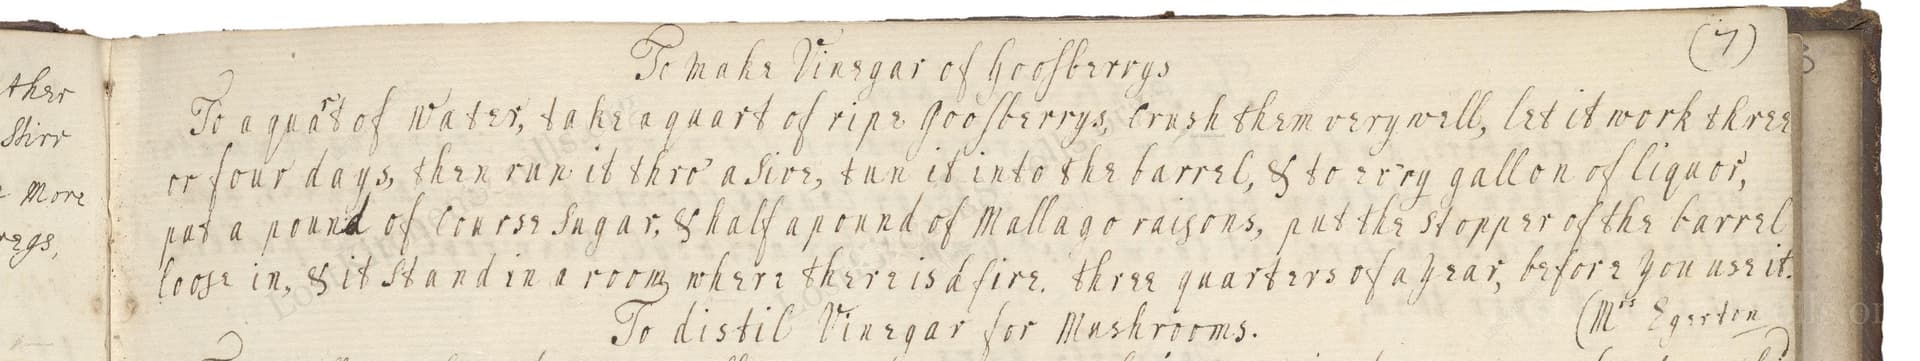 (7)
To make Vinegar of Goosberrys
To a quart of water, take a quart of ripe Goosberrys, Crush them very well, let it work three
or four days, then run it thro' a Sive, tun it into the barrel, & to ev'ry gallon of liquor,
put a pound of Course Sugar, & half a pound of Mallago raisons, put the Stopper of the barrel
loose in, & it Stand in a room where there is a fire. three quarters of a Year, before you use it.
(Mrs Egerton
To distil Vinegar for Mushrooms.
ther
Stirr
More